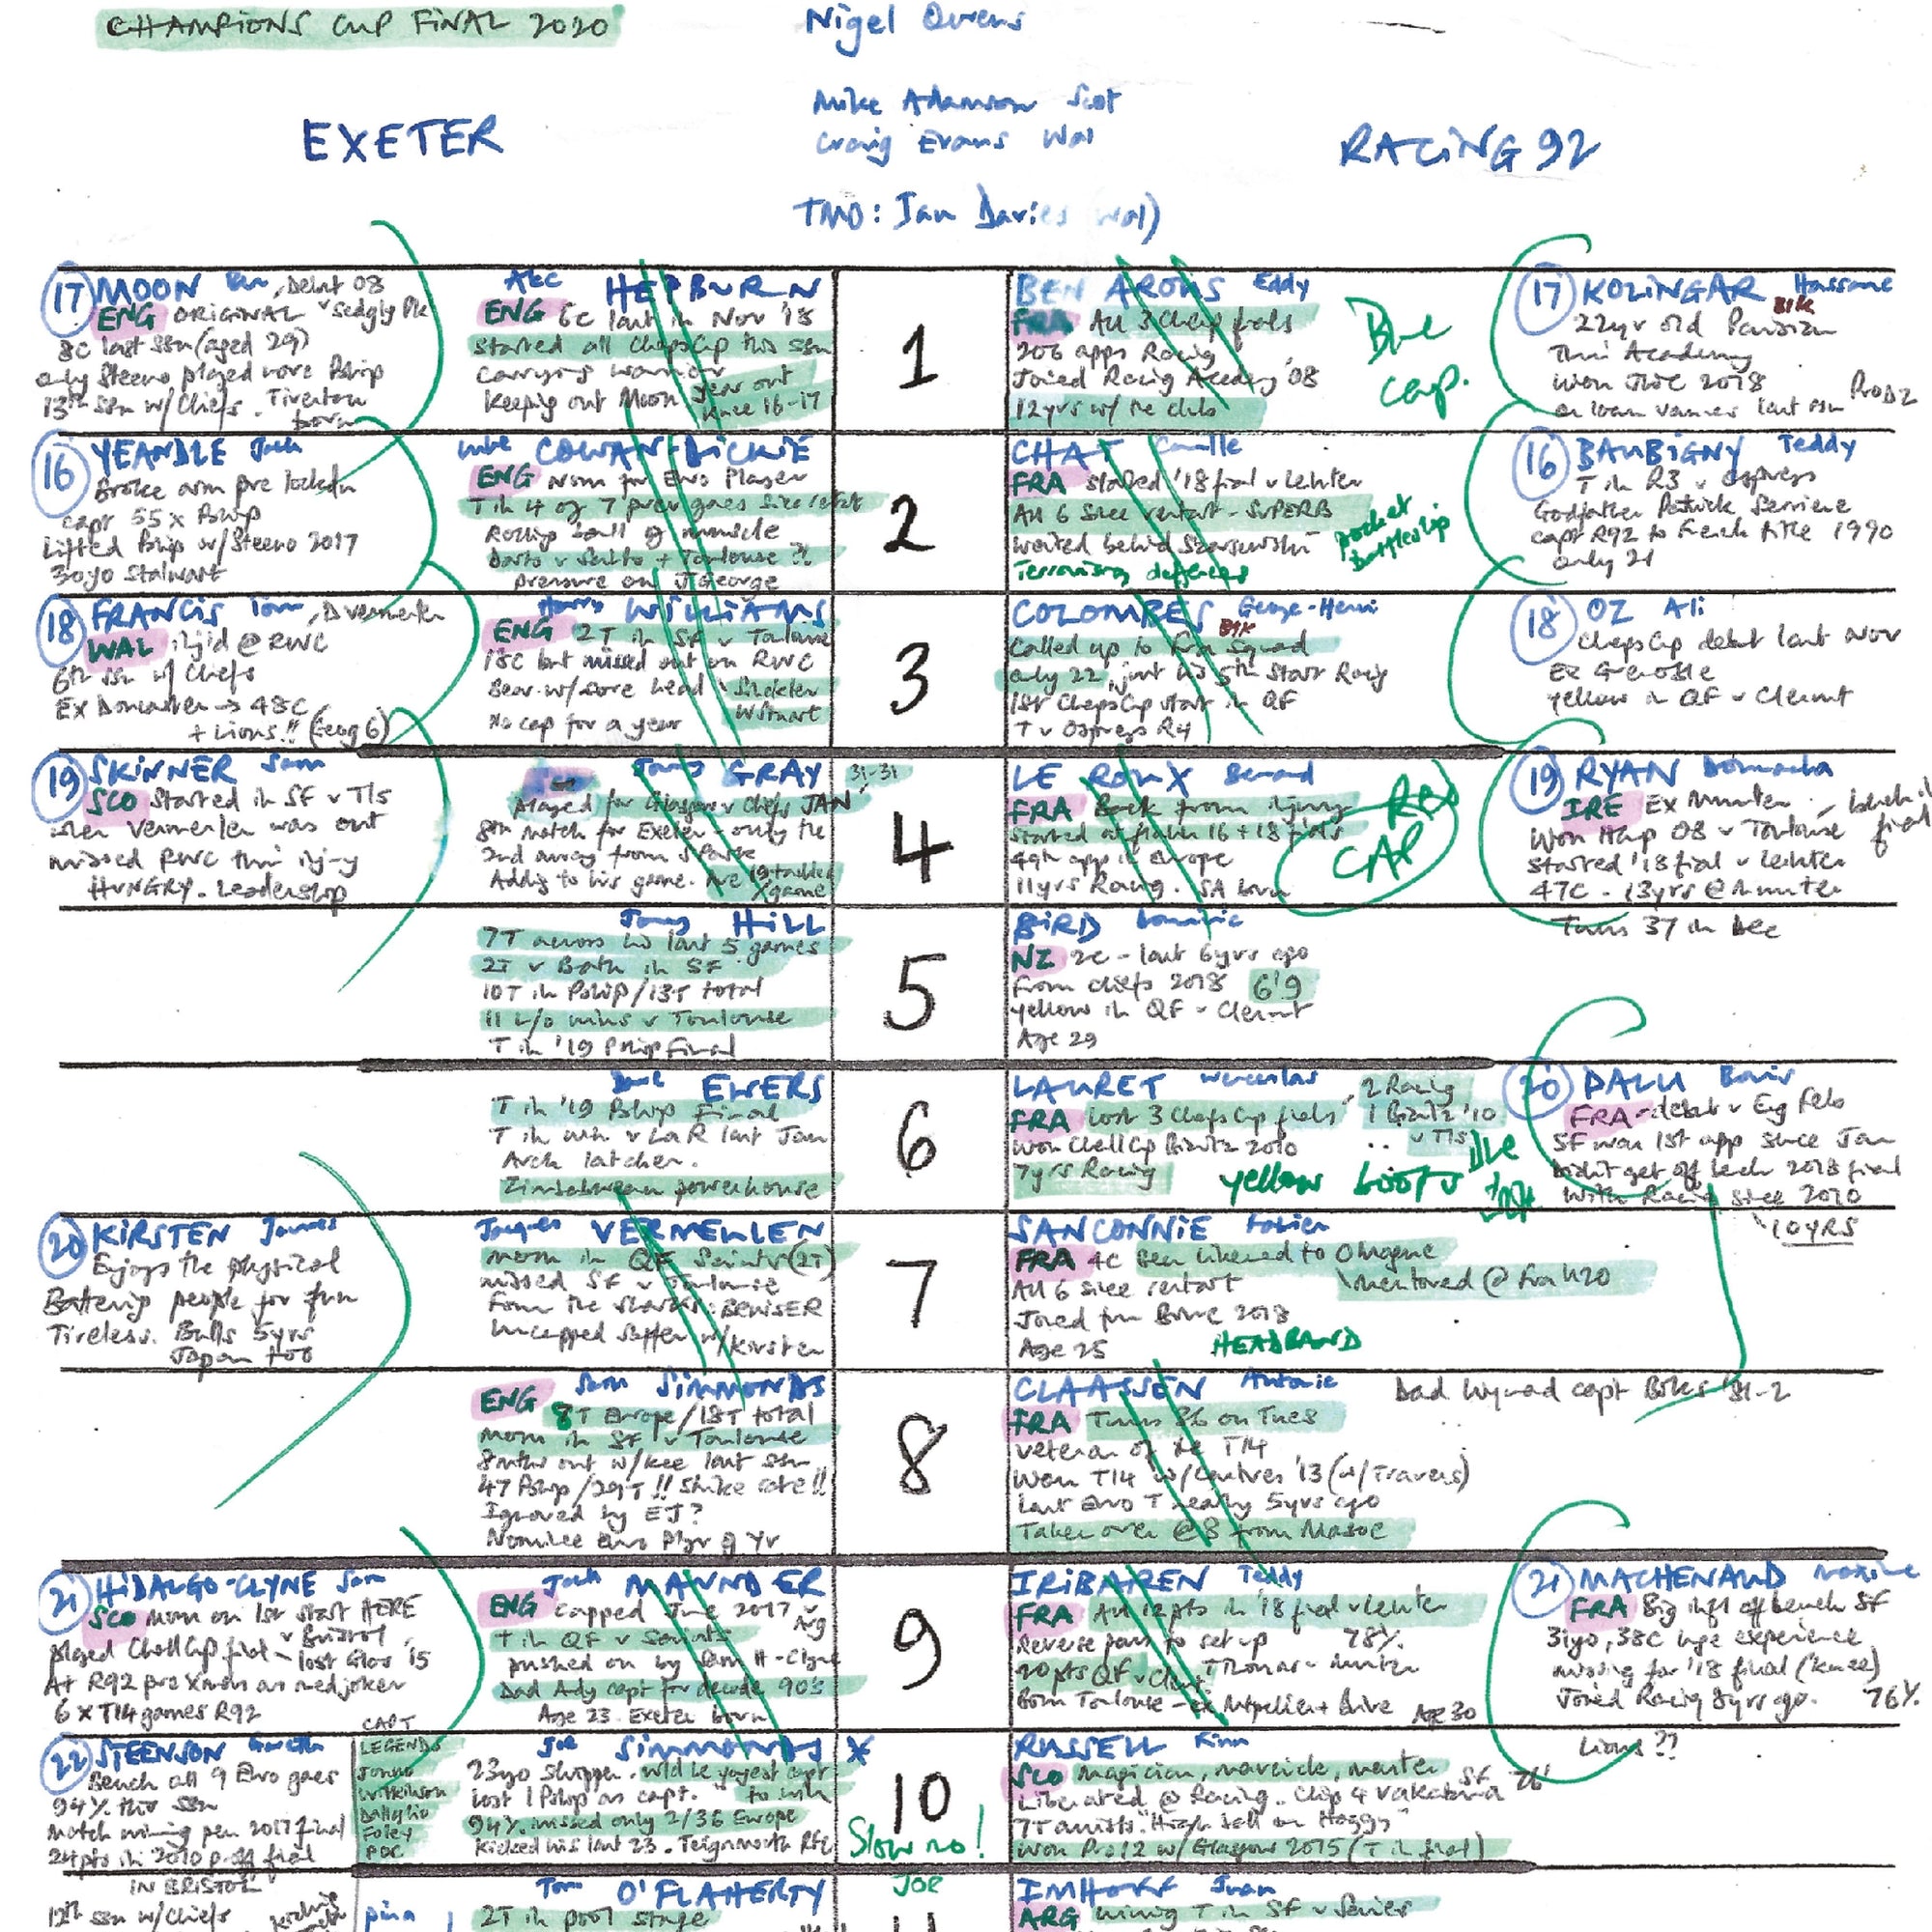 CHAMPIONS CUP FINAL 2020
Nigel Owens
Mike Adamson Scot
Craig Evans Wal
EXETER
RACING 92
TMO: Ian Davies Wal)
17 MOON Ben, Debut 08
ENG ORIGINAL v Sedgly Pk
8C last ssn (aged 29)
only Steeno played more Pship
13th ssn w/ Chiefs. Tiverton
born
Alec HEPBURN
ENG 6c last in Nov '18
Started all ChpsCup this ssn
Carrying warrior
Keeping out Moon year out
knee 16-17
1
BEN AROUS Eddy
FRA All 3 ChCup finals
206 apps Racing
Joined Racing Academy '08
12yrs w/ the club
Blue
cap.
17 KOLINGAR Hassane
22yr old Parisian
Thru Academy
Won JWC 2018
on loan Vannes last ssn ProD2
16 YEANDLE Jack
Broke arm pre lockdn
capt 55 x Pship
Lifted Pship w/ Steeno 2017
30yo Stalwart
Luke COWAN-DICKIE
ENG Nom for Euro Player
T in 4 of 7 prev games since restart
Rolling ball of muscle
Darts v Saints + Toulouse ?!
pressure on J George
2
CHAT Camille
FRA started '18 final v Leinster
All 6 since restart - SUPERB
waited behind Szarzewski
Terrorising defences
pocket
battleship
16 BAUBIGNY Teddy
T in R3 v Ospreys
Godfather Patrick Serriere
capt R92 to French title 1990
only 21
18 FRANCIS Tom, D
WAL inj'd @ RWC
6th ssn w/ Chiefs
Ex Doncaster → 48C
+ Lions!! (Geog 6)
Harry WILLIAMS
ENG 2T in SF v Toulouse
18C but missed out on RWC
Bear w/ sore head
W Stuart
No cap for a year
3
COLOMBES George-Henri
Called up to Fra Squad
only 22, just his 5th start Racing
1st ChpsCup start in QF
T v Ospreys R4
18 OZ Ali
ChpsCup debut last Nov
Ex Grenoble
yellow in QF v Clermt
19 SKINNER Sam
SCO Started in SF v Tls
when Vermeulen was out
missed RWC thru inj-y
HUNGRY. Leadership
Jonny GRAY 31-31
Played for Glasgow v Chiefs JAN
8th match for Exeter - only the
2nd away from S Park
Adding to his game. Ave 19 tackles
/game
4
LE ROUX Bernard
FRA Back from injury
Started at flank 16 + 18 finals
49th app in Europe
11yrs Racing. SA born
RED
CAP
19 RYAN Donnacha
IRE Ex Munster
Won HCup 08 v Toulouse final
Started '18 final v Leinster
47C - 13yrs @ Munster
Turns 37 in Dec
Jonny HILL
7T across his last 5 games
2T v Bath in SF
10T in Pship/13T total
11 L/O wins v Toulouse
T in '19 Pship Final
5
BIRD Dominic
NZ 2c - last 6yrs ago
From Chiefs 2018 6'9
yellow in QF v Clermt
Age 29
Dave EWERS
T in '19 Pship Final
T in win v LaR last Jan
Arch latcher.
Zimbabwean powerhouse
6
LAURET Wenceslas, 2 Racing
FRA lost 3 ChpsCup finals 1 Biarritz '10
Won ChallCup Biarritz 2010 .. v Tls
7yrs Racing
yellow boots Blue
20 PALU Boris
FRA - debut v Eng Feb
SF was 1st app since Jan
Didn't get off bench 2018 final
With Racing since 2010
10YRS
20 KIRSTEN Jannes
Enjoys the physical
Battering people for fun
Tireless. Bulls 5yrs
Japan too
Jacques VERMEULEN
mom in QF Saints (2T)
missed SF v Toulouse
From the Sharks: BRUISER
Uncapped Saffer w/ Kirsten
7
SANCONNIE Fabien
FRA 4c Been likened to Ollivon
All 6 since restart mentored @ Fra U20
Joined from Brive 2018
Age 25
HEADBAND
Sam SIMMONDS
ENG 8T Europe/18T total
mom in SF v Toulouse
8mths out w/ knee last ssn
47 Pship/29T!! Strike rate!!
Ignored by EJ?
Nominee Euro Plyr of Yr
8
CLAASSEN Antonie Dad Wynand capt Boks '81-2
FRA Turns 36 on Tues
Veteran of the T14
Won T14 w/ Castres '13 (w/ Travers)
Last Euro T nearly 5yrs ago
Taken over @ 8 from Masoe
21 HIDALGO-CLYNE Sam
SCO mom on 1st start HERE
v Bristol
played ChallCup final - lost Glos '15
At R92 pre Xmas as med joker
6 x T14 games R92
Jack MAUNDER
ENG capped June 2017 v Arg
T in QF v Saints
pushed on by Sam H-Clyne
Dad Ady capt for decade 90's
Age 23. Exeter born
9
IRIBAREN Teddy
FRA All 12pts in '18 final v Leinster
Reverse pass to set up 78%
20 pts QF v Clermt T Thomas v Munster
Born Toulouse - ex Mtpellier + Brive Age 30
21 MACHENAUD Maxime
FRA Big infl off bench SF
31yo, 38C huge experience
missing for '18 final (knee)
Joined Racing 8yrs ago. 76%
Lions??
22 STEENSON Gareth
Bench all 9 Euro games
94% this ssn
match winning pen 2017 final
24pts in 2010 p-off final
IN BRISTOL
12th ssn w/ Chiefs
CAPT
LEGENDS
Jonno
Wilkinson
Dallaglio
Foley
POC
Joe SIMMONDS *
23yo skipper. wld be yngest capt
to win
lost 1 Pship as capt.
94%. missed only 2/36 Europe
Kicked his last 23. Teignmouth RFC
10
Slow mo!
RUSSELL Finn
SCO magician, maverick, master
Liberated @ Racing. Chip 4 Vakatawa SF 76'
7T assists. "High ball on Hoggy"
Won Pro12 w/ Glasgow 2015 (T in final)
Tom O'FLAHERTY
2T in pool stage
JOE
11
IMHOFF Juan
ARG winning T in SF v Saries